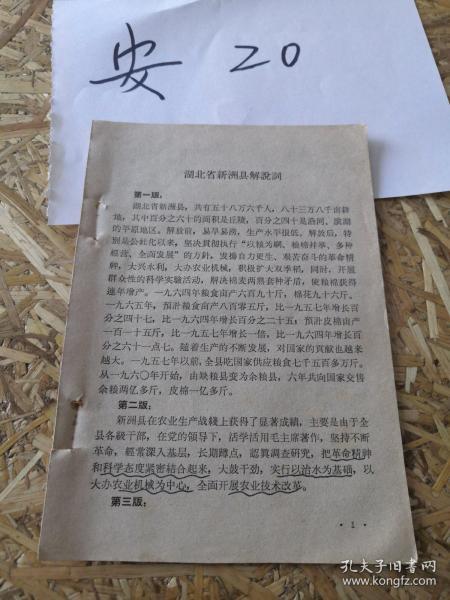 安 20
湖北省新洲县解說詞
第一版：
湖北省新洲县，共有五十八万六千人，八十三万八千亩耕
地，其中百分之六十的面积是丘陵，百分之四十是沿河、滨湖
的平原地区。解放前，易旱易涝，生产水平很低，解放后，特
別是公社化以来，坚决貫彻执行“以粮为綱，粮棉幷举，多种
經营，全面发展”的方針，发揚自力更生、艰苦奋斗的革命精
神，大兴水利，大办农业机械，积极扩大双季稻，同时，开展
群众性的科学实驗活动，解决棉麦两熟套种矛盾，使粮棉获得
連年增产。一九六四年粮食亩产六百九十斤，棉花九十六斤。
一九六五年，预計亩产八百零五斤，比一九五七年增长百
分之四十七，比一九六四年增长百分之二十五；预計皮棉亩产
一百一十五斤，比一九五七年增长一倍，比一九六四年增长百
分之六十一点七。随着生产的不断发展，对国家的貢献也越来
越大。一九五七年以前，全县吃国家供应粮食七千五百多万斤。
从一九六〇年开始，由缺粮县变为余粮县，六年共向国家交售
余粮两亿多斤，皮棉一亿多斤。
第二版：
新洲县在农业生产战綫上获得了显著成績，主要是由于全
县各級干部，在党的領导下，活学活用毛主席著作，坚持不断
革命，經常深入基层，长期蹲点，認眞調查研究，把革命精神
和科学态度紧密結合起来，大鼓干劲，实行以治水为基础，以
大办农业机械为中心，全面开展农业技术改革。
第三版：
· 1 ·
孔夫子旧书网
www.kongfz.com